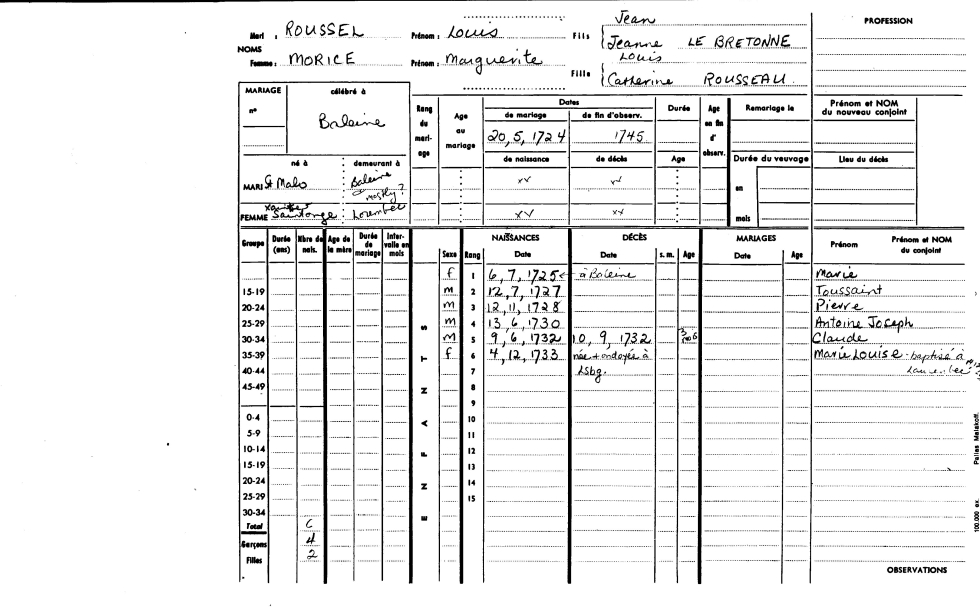 Mari : ROUSSEL Prénom : Louis Fils { Jean PROFESSION
Jeanne LE BRETONNE
NOMS
Femme : MORICE Prénom : Marguerite Fille { Louis
Catherine ROUSSEAU
MARIAGE célébré à
n° Baleine
Rang du mariage
Age au mariage
Dates
de mariage de fin d'observ.
20, 5, 1724 1745
de naissance de décès
Durée
Age
Age en fin d'observ.
Remariage le
Durée du veuvage
en
mois
Prénom et NOM du nouveau conjoint
Lieu du décès
né à demeurant à
MARI St Malo Baleine mostly?
xv
FEMME Saintonge Lorembec
xv xv
Groupe Durée (ans) Nbre de nais. Age de la mère Durée de mariage Intervalle en mois Sexe Rang NAISSANCES Date DÉCÈS Date s. m. Age MARIAGES Date Age Prénom Prénom et NOM du conjoint
ENFANTS
f 1 6, 7, 1725 ← à Baleine Marie
15-19 m 2 12, 7, 1727 Toussaint
20-24 m 3 12, 11, 1728 Pierre
25-29 m 4 13, 6, 1730 Antoine Joseph
30-34 m 5 9, 6, 1732 10, 9, 1732 3 mos Claude
35-39 f 6 4, 12, 1733 née + ondoyée à Marie Louise - baptisé à
40-44 7 Lsbg.
45-49 8
9
0-4 10
5-9 11
10-14 12
15-19 13
20-24 14
25-29 15
30-34
Total 6
Garçons 4
Filles 2
OBSERVATIONS
100.000 ex. Pallas Malakoff.